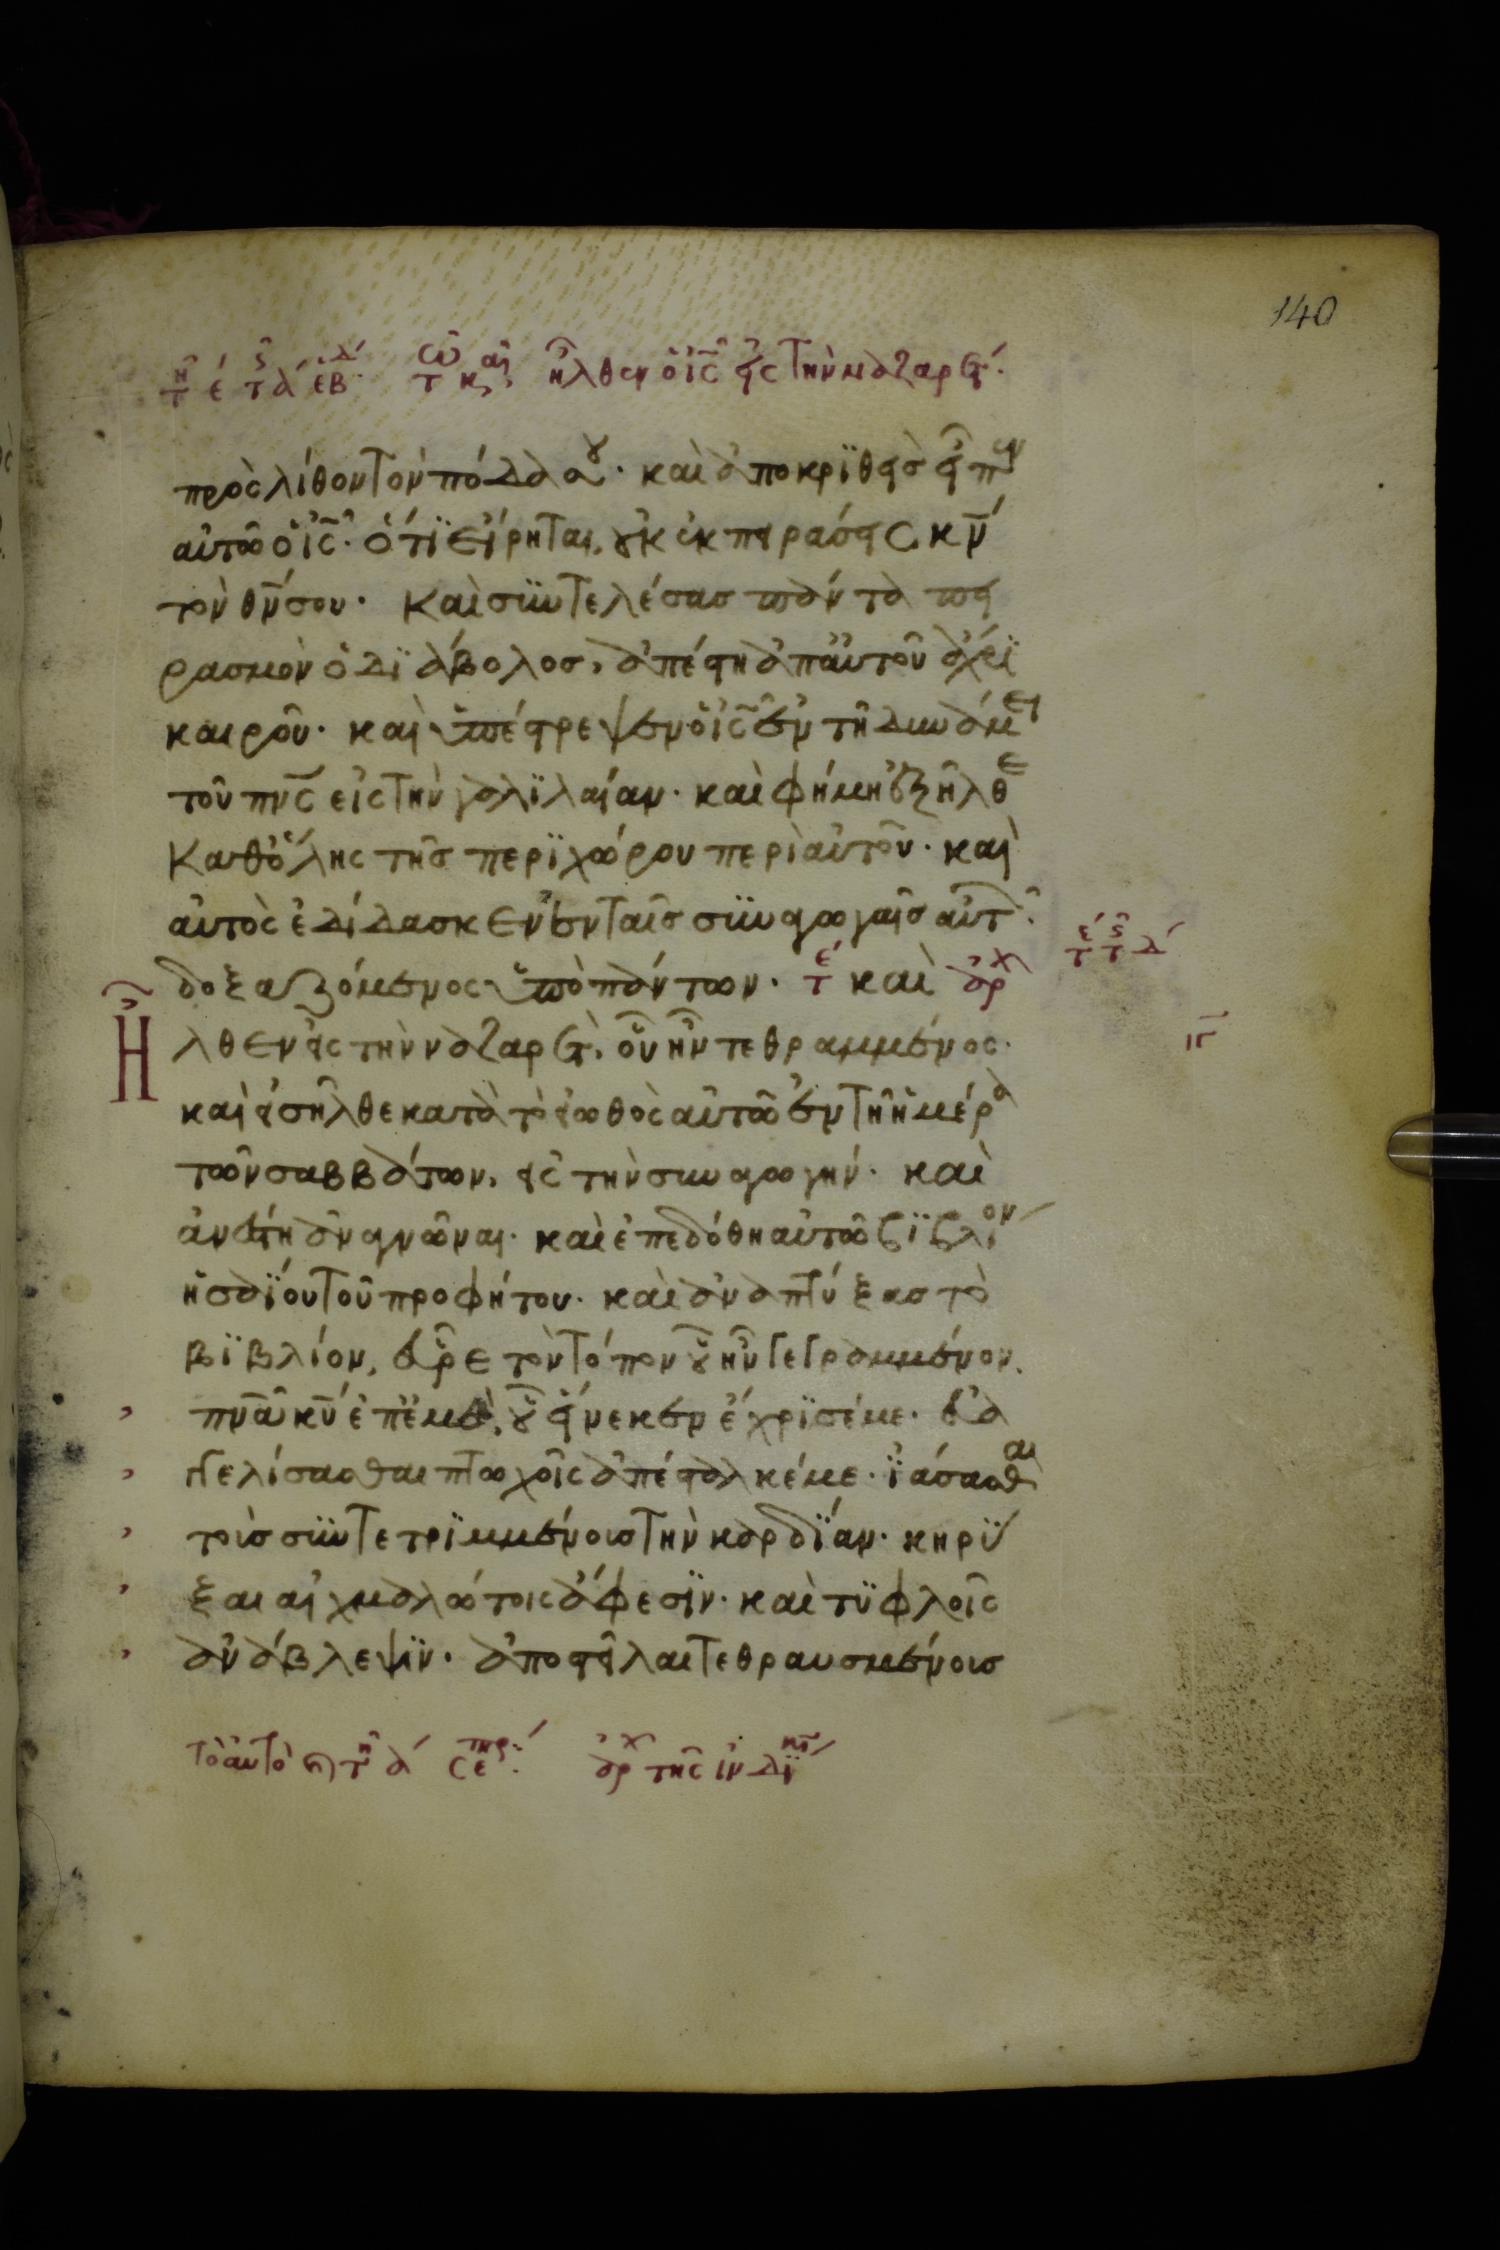 140
ἦλθεν ὁ ις εἰς την ναζαρετ
προς λίθον τον πόδα σου· και ἀποκριθεις εἶπεν
αὐτω ὁ ις· ὁτι εἰρηται, οὐκ ἐκπειράσεις κν
τον θν σου· και συντελέσας πάντα πει
ρασμον ὁ διάβολος, ἀπέστη ἀπ αὐτου ἀχρι
καιρου· και ὑπέστρεψεν ὁ ις ἐν τη δυνάμει
του πνς εἰς την γαλιλαίαν· και φήμη ἐξηλθε
καθ ὁλης της περιχώρου περι αὐτου· και
αὐτος ἐδίδασκεν ἐν ταις συναγωγαις αὐτ
δοξαζόμενος ὑπο πάντων· και
ἦλθεν εἰς την ναζαρετ, οὗ ἦν τεθραμμένος·
και εἰσηλθε κατα το εἰωθος αὐτω ἐν τη ἡμέρα
των σαββάτων, εἰς την συναγωγήν· και
ἀνέστη ἀναγνωναι· και ἐπεδόθη αὐτω βιβλίον
ἡσαΐου του προφήτου· και ἀναπτύξας το
βιβλίον, εὗρε τον τόπον οὗ ἦν γεγραμμένον,
πνα κυ ἐπ ἐμε, οὗ εἵνεκεν ἔχρισέ με· εὐα
γγελίσασθαι πτωχοις ἀπέσταλκέ με· ἰάσασθαι
τους συντετριμμένους την καρδίαν· κηρύ
ξαι αἰχμαλώτοις ἄφεσιν· και τυφλοις
ἀνάβλεψιν· ἀποστειλαι τεθραυσμένους
το αὐτο της